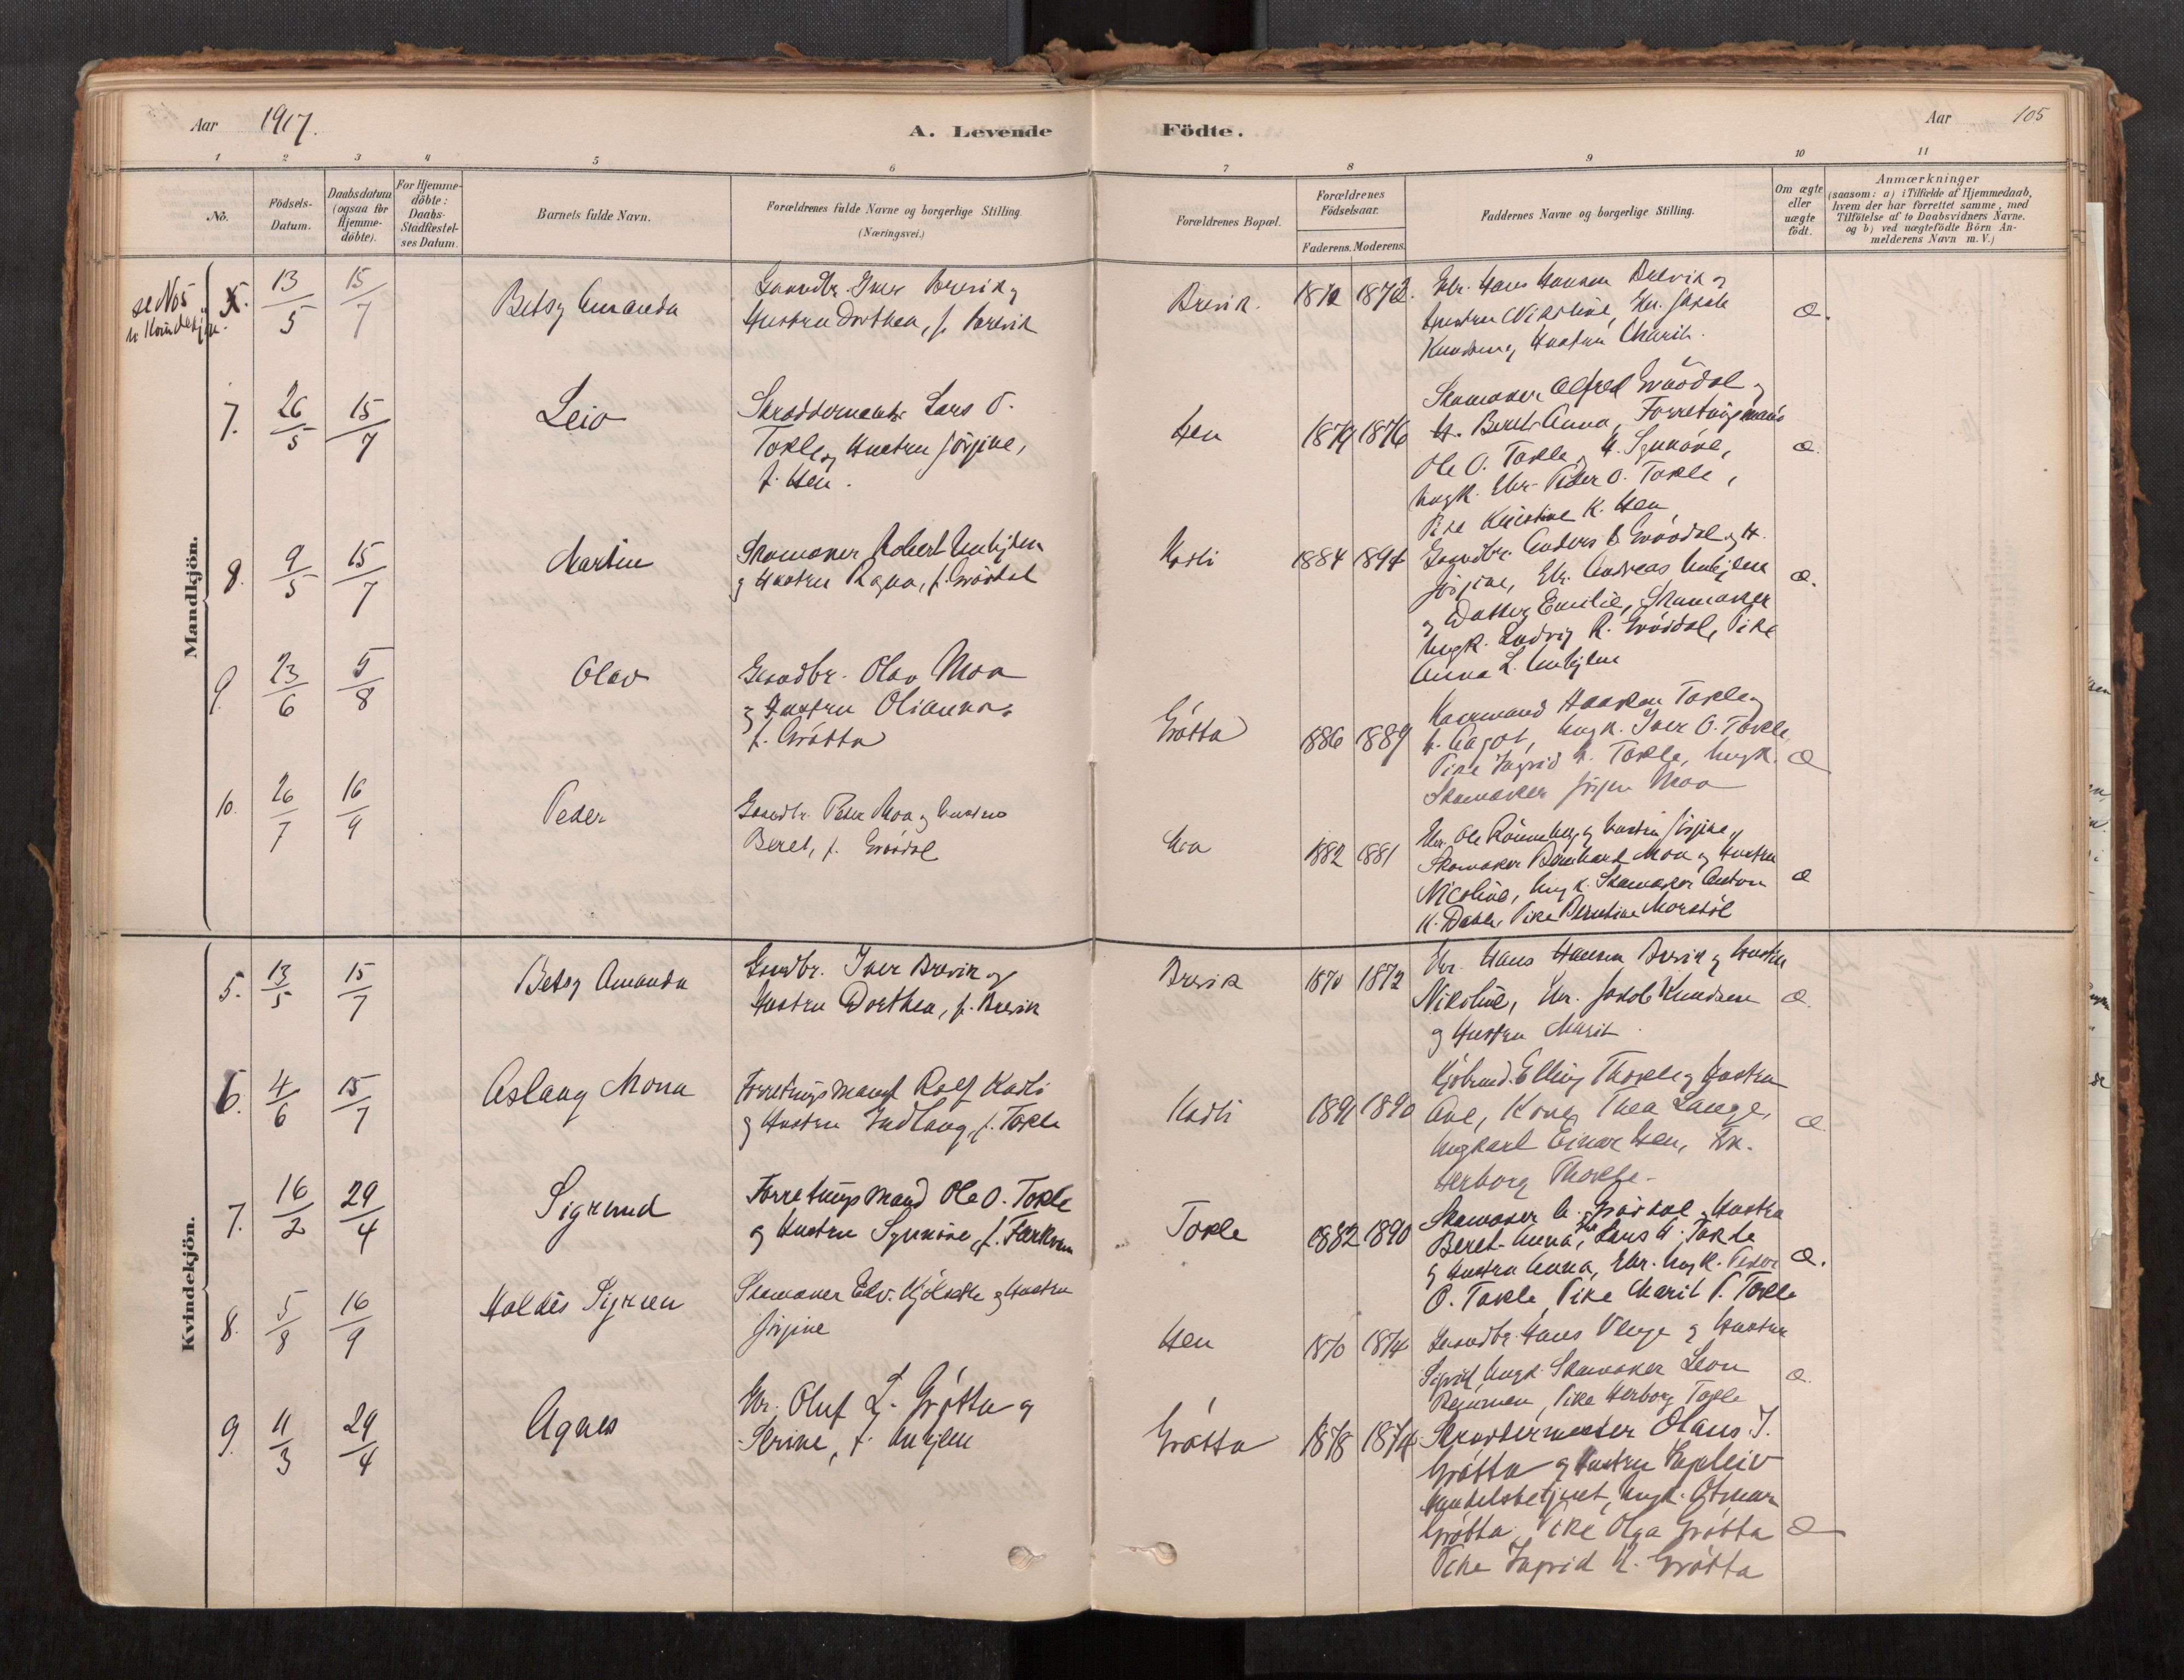 Aar 1917.
A. Levende
Födte.
Aar 105
1 2 3 4 5 6 7 8 9 10 11
No.
Födsels-
Datum.
Daabsdatum
(ogsaa for
Hjemme-
döbte).
For Hjemme-
döbte:
Daabs-
Stadfæstel-
ses Datum.
Barnets fulde Navn.
Forældrenes fulde Navne og borgerlige Stilling.
(Næringsvei.)
Forældrenes Bopæl.
Forældrenes
Födselsaar.
Faderens. Moderens.
Faddernes Navne og borgerlige Stilling.
Om ægte
eller
uægte
födt.
Anmærkninger
(saasom: a) i Tilfælde af Hjemmedaab,
hvem der har forrettet samme, med
Tilföielse af to Daabsvidners Navne.
og b) ved uægtefödte Börn An-
melderens Navn m. V.)
Mandkjön.
se No 5
5. 13/5 15/7 Betsy Amanda
Gaardbr. Iver Brevik og
Hustru Dorthea, f. Brevik
Brevik. 1870 1872.
Gbr. Hans Hansen Brevik og
Hustru Nikoline, Gbr. Jakob
Knudsen og Hustru Marit.
æ.
7. 26/5 15/7 Leiv
Skræddermester Lars O.
Tokle og Hustru Jörgine,
f. Hen.
Hen 1879 1876
Skomaker Alfred Grövdal og
H. Beret Anna, Forretningsmand
Ole O. Tokle og H. Synnöve,
Ungk. Gbr. Peder O. Tokle,
Pike Kristine K. Hen
æ.
8. 9/5 15/7 Martin
Skomaker Robert Unhjem
og Hustru Ragna, f. Grövdal
Kavli 1884 1894
Gaardbr. Anders Grövdal og H.
Jörgine, Gbr. Andreas Unhjem
og Datter Emilie, Skomaker
Ungk. Ludvig R. Grövdal, Pike
Anna L. Unhjem
æ.
9. 23/6 5/8 Olav
Gaardbr. Olav Moa
og Hustru Olianna,
f. Grötta
Grötta 1886 1889
Haakon Tokle og
H. Aagot, Ungk. Iver O. Tokle,
Pike Ingrid Tokle, Ungk.
Skomaker Jörgen Moa
æ
10. 26/7 16/9 Peder
Gaardbr. Peder Moa og Hustru
Beret, f. Grövdal
Moa 1882 1881
Gbr. Ole Rönneberg og Hustru Jörgine,
Skomaker Bernhard Moa og Hustru
Nicoline, Ungk. Skomaker Anton
K. Dahle, Pike Berntine Morstöl
æ
Kvindekjön.
5. 13/5 15/7 Betsy Amanda
Gaardbr. Iver Brevik og
Hustru Dorthea, f. Brevik
Brevik 1870 1872
Gbr. Hans Hansen Brevik og Hustru
Nikoline, Gbr. Jakob Knudsen
og Hustru Marit.
æ.
6. 4/6 15/7 Aslaug Mona
Forretningsmand Rolf Kavli
og Hustru Indlaug, f. Tokle
Kavli 1891 1890
Kjöbmd. Elling Thokle og Hustru
Ane, Kone Thea Lange,
Ungkarl Einar Hen, Frk.
Herborg Thokle.
æ.
7. 16/2 29/4 Sigrund
Forretningsmand Ole O. Tokle
og Hustru Synnöve, f.
Tokle 1882 1890
Skomaker A. Grövdal og Hustru
Beret-Anna, Gbr. Lars A. Tokle
og Hustru Anna, Gbr. Ungk. Peder
O. Tokle, Pike Marit P. Tokle
æ.
8. 5/8 16/9 Haldis Sigrun
Skomaker Edv. og Hustru
Jörgine
Hen 1870 1874
Gaardbr. Hans Venge og Hustru
Sigrid, Ungk. Skomaker Leon
Pike Herborg Tokle
æ.
9. 11/3 29/4 Agnes
Gbr. Oluf L. Grötta og
Serine, f. Unhjem
Grötta 1878 1874
Skræddermester Olaus J.
Grötta og Hustru
Handelsbetjent, Ungk. Otmar
Grötta, Pike Olga Grötta
Pike Ingrid K. Grötta
æ